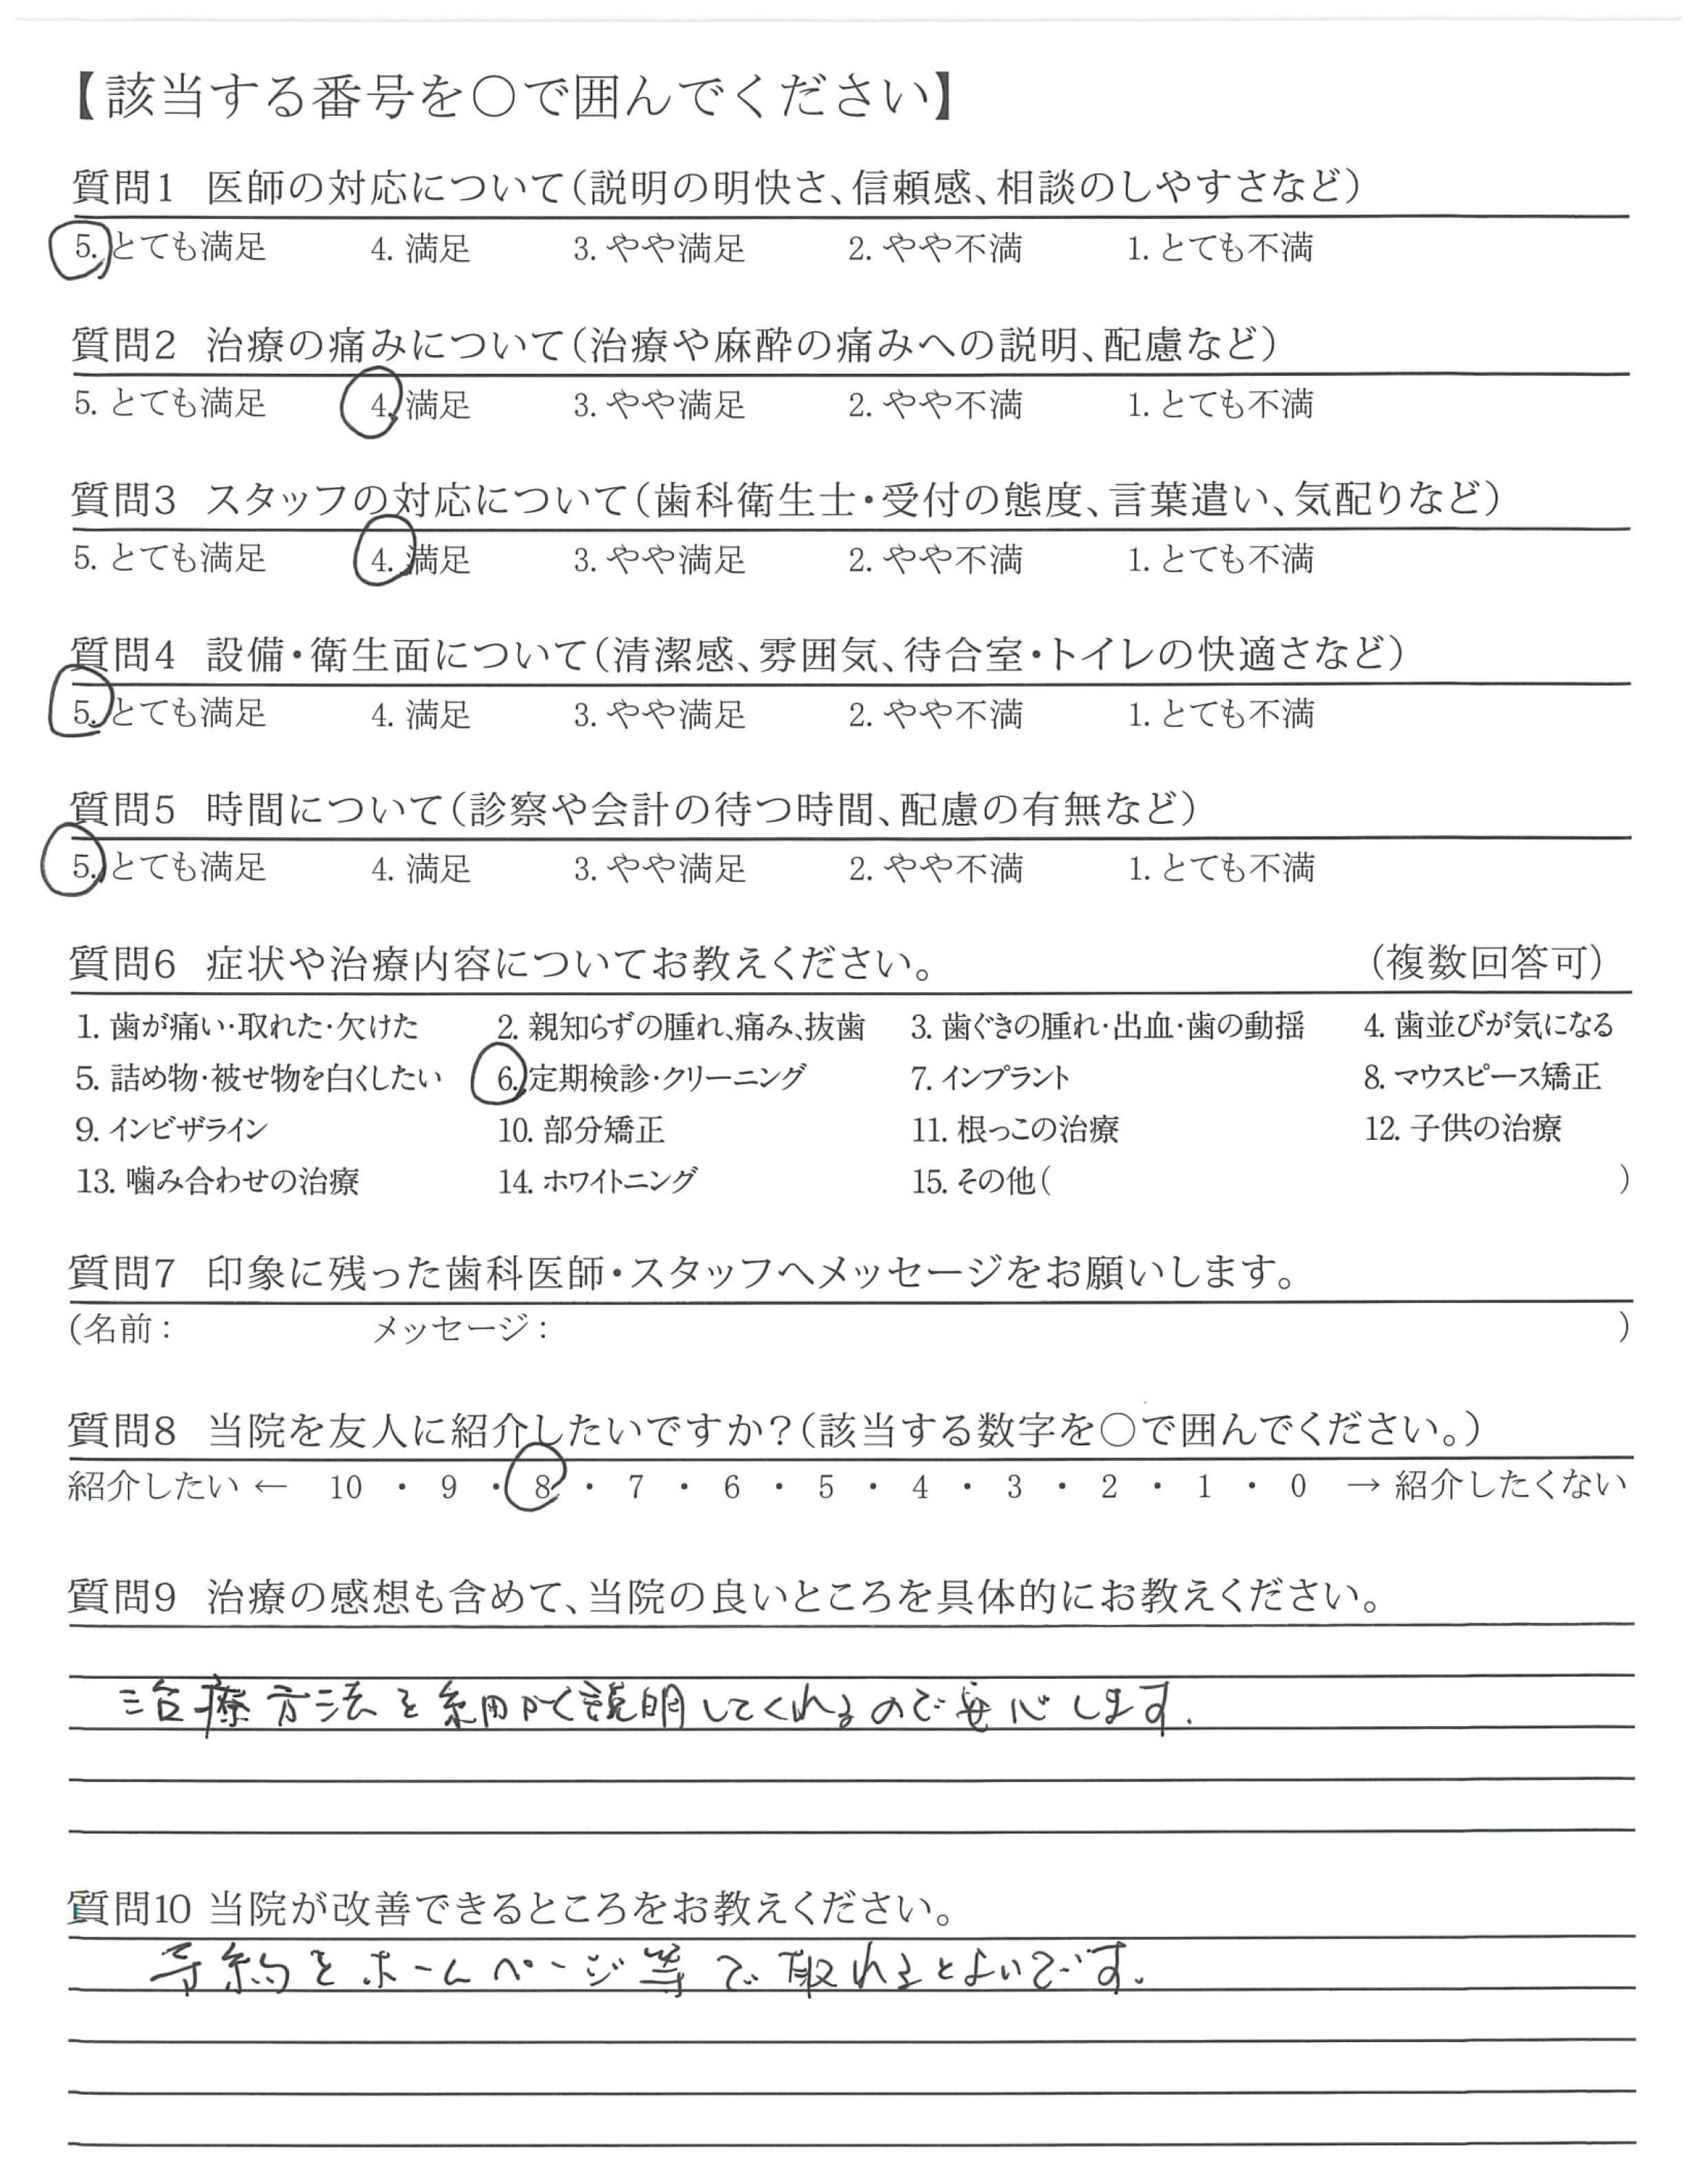 【該当する番号を○で囲んでください】
質問1 医師の対応について(説明の明快さ、信頼感、相談のしやすさなど)
5. とても満足 4. 満足 3. やや満足 2. やや不満 1. とても不満
質問2 治療の痛みについて(治療や麻酔の痛みへの説明、配慮など)
5. とても満足 4. 満足 3. やや満足 2. やや不満 1. とても不満
質問3 スタッフの対応について(歯科衛生士・受付の態度、言葉遣い、気配りなど)
5. とても満足 4. 満足 3. やや満足 2. やや不満 1. とても不満
質問4 設備・衛生面について(清潔感、雰囲気、待合室・トイレの快適さなど)
5. とても満足 4. 満足 3. やや満足 2. やや不満 1. とても不満
質問5 時間について(診察や会計の待つ時間、配慮の有無など)
5. とても満足 4. 満足 3. やや満足 2. やや不満 1. とても不満
質問6 症状や治療内容についてお教えください。 (複数回答可)
1. 歯が痛い・取れた・欠けた 2. 親知らずの腫れ、痛み、抜歯 3. 歯ぐきの腫れ・出血・歯の動揺 4. 歯並びが気になる
5. 詰め物・被せ物を白くしたい 6. 定期検診・クリーニング 7. インプラント 8. マウスピース矯正
9. インビザライン 10. 部分矯正 11. 根っこの治療 12. 子供の治療
13. 噛み合わせの治療 14. ホワイトニング 15. その他( )
質問7 印象に残った歯科医師・スタッフへメッセージをお願いします。
(名前: メッセージ: )
質問8 当院を友人に紹介したいですか?(該当する数字を○で囲んでください。)
紹介したい ← 10 ・ 9 ・ 8 ・ 7 ・ 6 ・ 5 ・ 4 ・ 3 ・ 2 ・ 1 ・ 0 → 紹介したくない
質問9 治療の感想も含めて、当院の良いところを具体的にお教えください。
治療方法を細かく説明してくれるので安心します.
質問10 当院が改善できるところをお教えください。
予約をホームページ等で取れるとよいです.